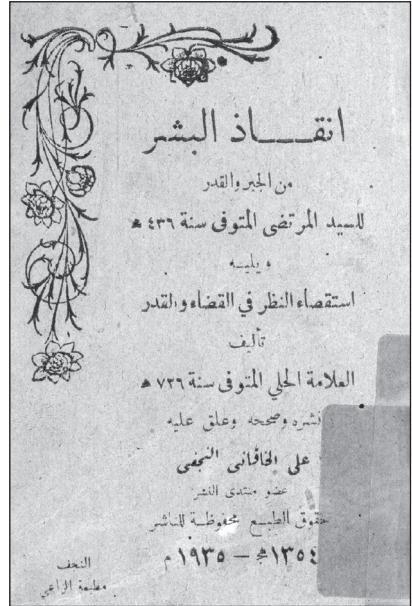 انقـــاذ البشر
من الجبر والقدر
للسيد المرتضى المتوفى سنة ٤٣٦ ھ
ويليـه
استقصاء النظر في القضاء والقدر
تأليف
العلامة الحلي المتوفى سنة ٧٢٦ ھ
نشره وصححه وعلق عليه
على الخاقانى النجفى
عضو منتدى النشر
حقوق الطبـع محفوظـة للناشر
١٣٥٤ھ – ١٩٣٥ م
النجف
مطبعة الراعي